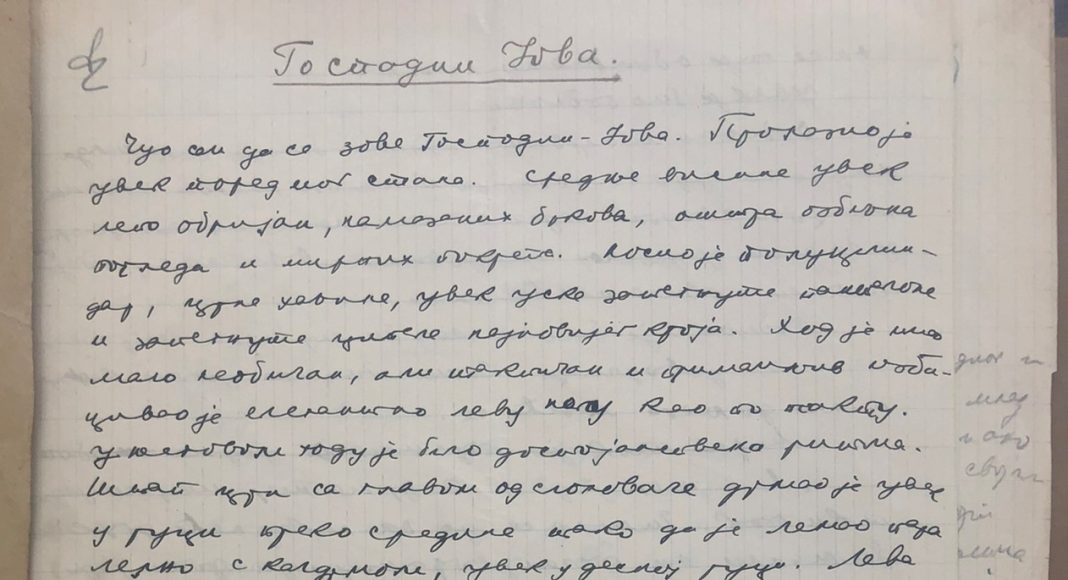 Господин Јова.
Чуо сам да се зове Господин-Јова. Пролазио је
увек поред мог стана. Средње висине увек
лепо обријан, намазаних бркова, оштра озбиљна
погледа и мирних покрета. Носио је полуцилин-
дар, црне хаљине, увек уске затегнуте панталоне
и затегнуте ципеле најновијег кроја. Ход је имао
мало необичан, али тактичан и
цивао је елегантно леву ногу као по такту.
У његовом ходу је било достојанствено ритма.
Штап црн са главом од слоноваче држао је увек
у руци преко средине тако да је лежао пара
лелно с калдрмом, увек у десној руци. Лева